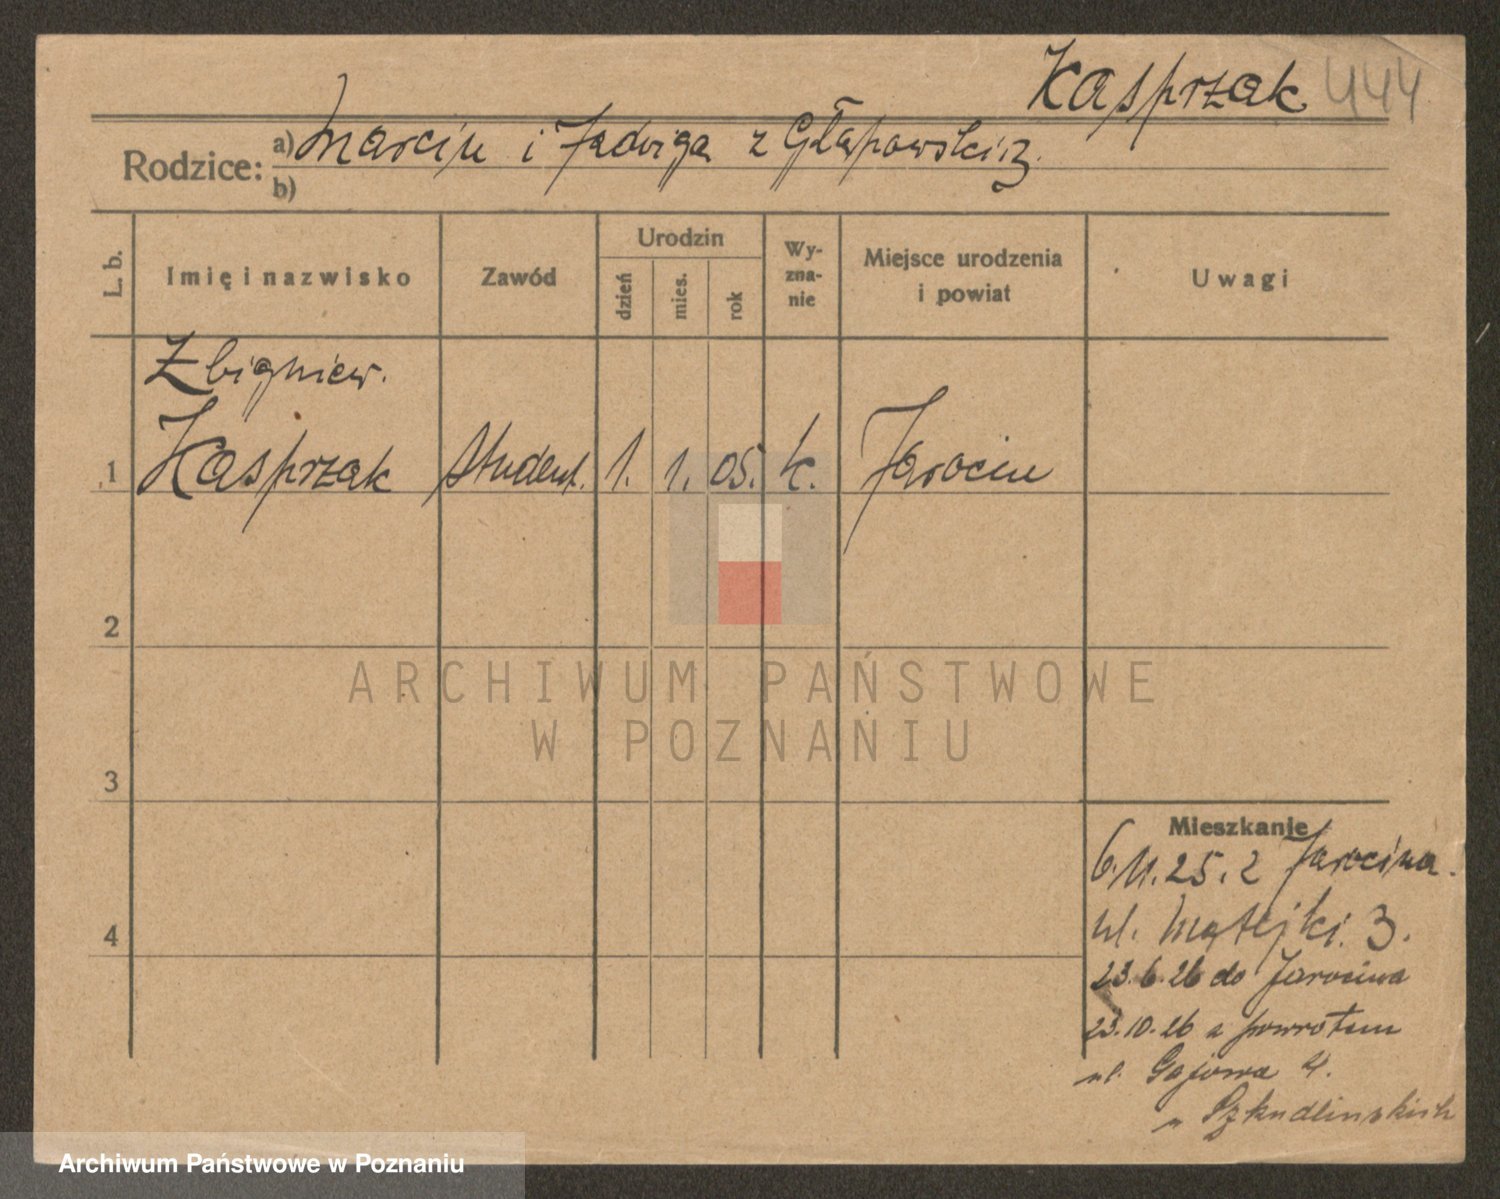 Kasprzak 444
Rodzice: a) Marcin i Jadwiga z
b)
L. b.
Imię i nazwisko
Zawód
Urodzin
dzień
mies.
rok
Wy-
zna-
nie
Miejsce urodzenia
i powiat
Uwagi
Zbigniew.
1 Kasprzak student. 1. 1. 05. k. Jarocin
2
3
4
Mieszkanie
6.11.25. z Jarocina.
ul. Matejki. 3.
23.6.26 do Jarocina
23.10.26 z powrotem
ul. Gajowa 4.
u Szkudlinskich
ARCHIWUM PAŃSTWOWE
W POZNANIU
Archiwum Państwowe w Poznaniu